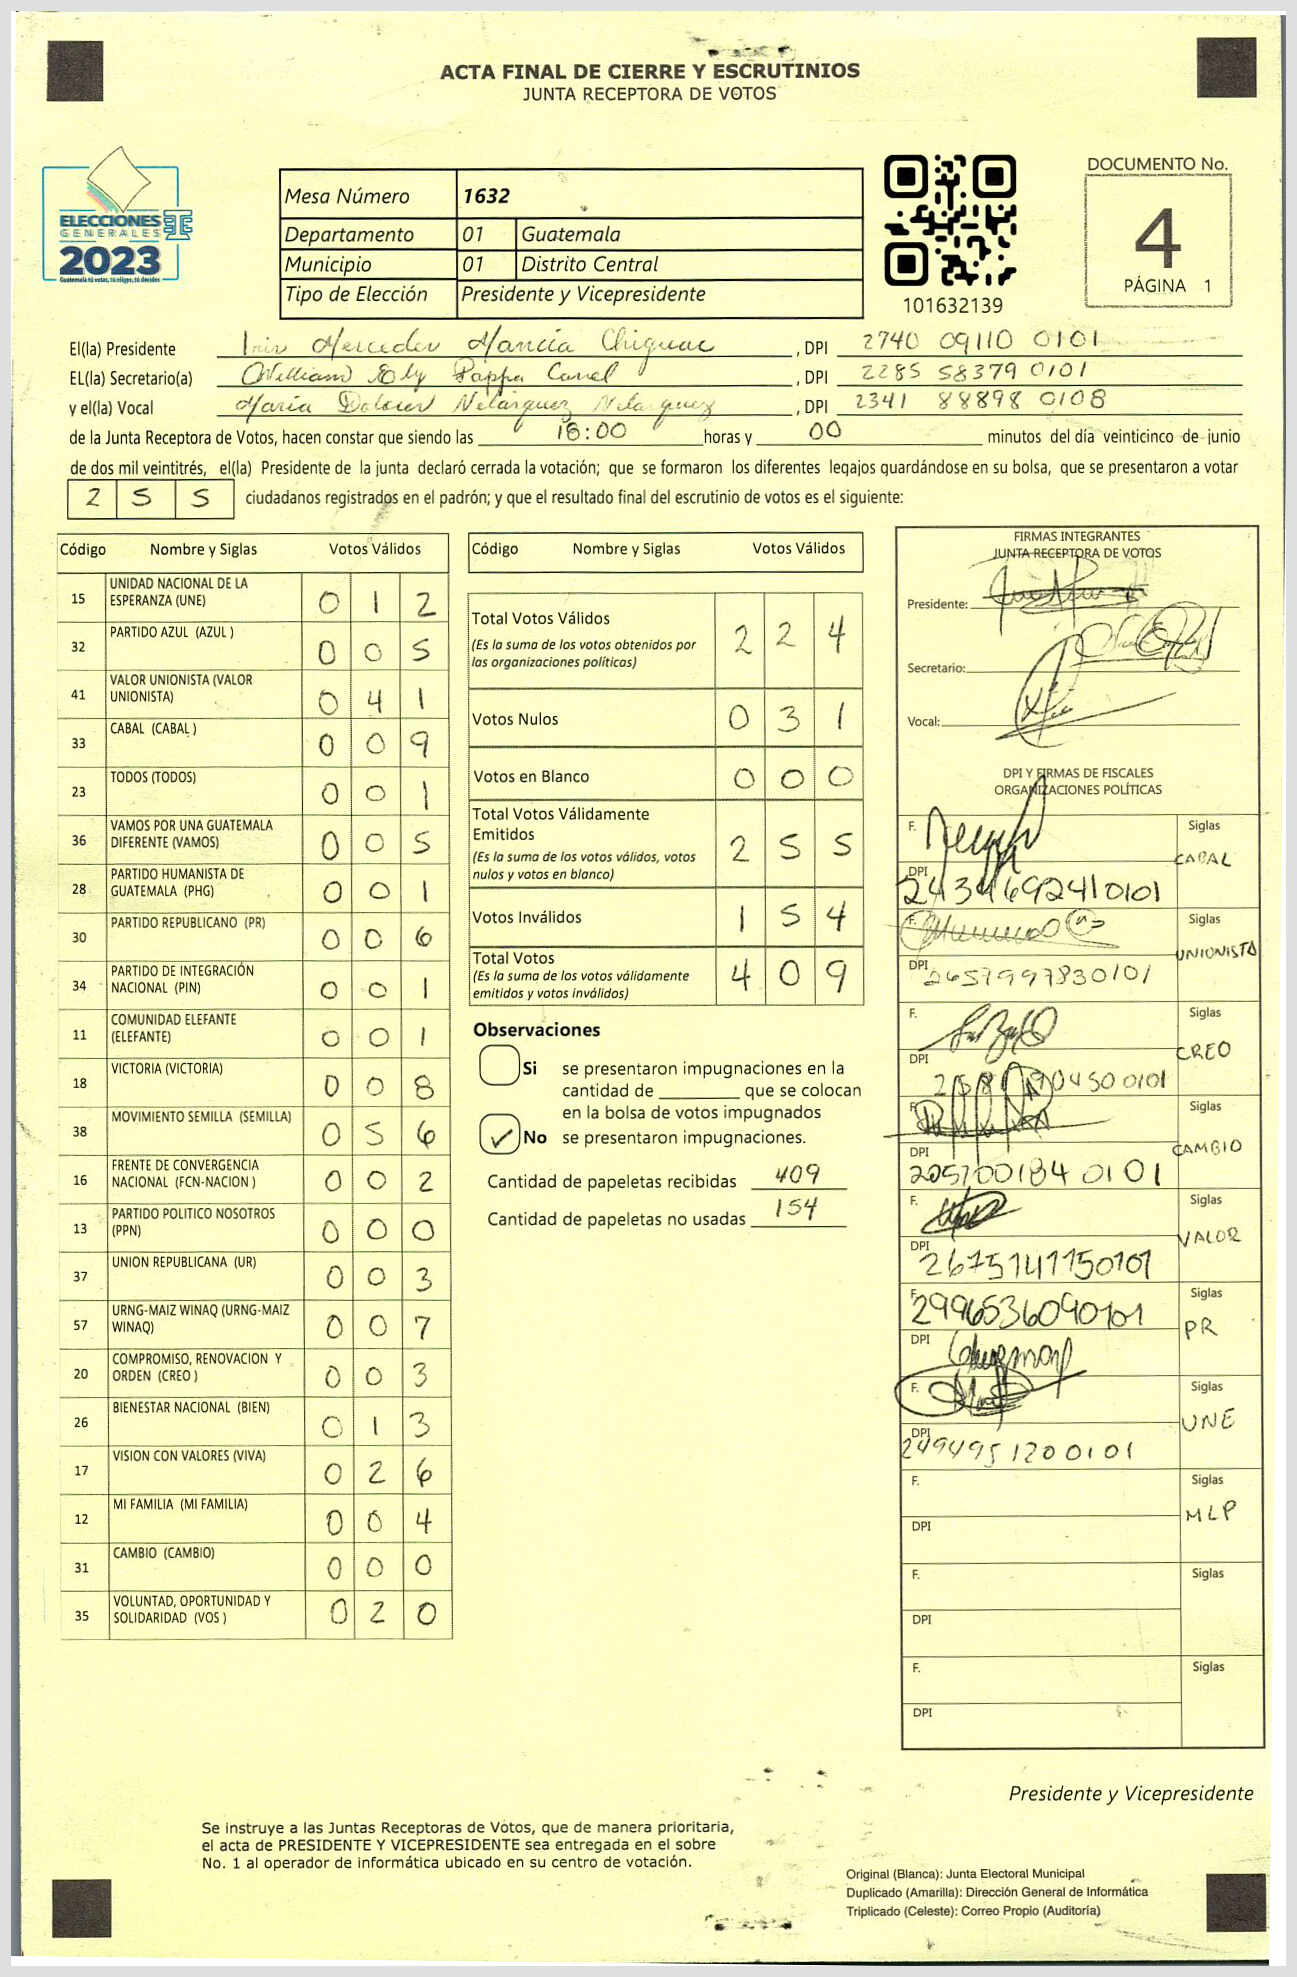 ACTA FINAL DE CIERRE Y ESCRUTINIOS
JUNTA RECEPTORA DE VOTOS
ELECCIONES
GENERALES
2023
Guatemala tú votas, tú eliges, tú decides
Mesa Número 1632
Departamento 01 Guatemala
Municipio 01 Distrito Central
Tipo de Elección Presidente y Vicepresidente
101632139
DOCUMENTO No.
4
PÁGINA 1
El(la) Presidente Iris Mercedes , DPI 2740 09110 0101
EL(la) Secretario(a) William Ely Pappa Canel , DPI 2285 58379 0101
y el(la) Vocal María Dolores Velásquez Velasquez , DPI 2341 88898 0108
de la Junta Receptora de Votos, hacen constar que siendo las 18:00 horas y 00 minutos del día veinticinco de junio
de dos mil veintitrés, el(la) Presidente de la junta declaró cerrada la votación; que se formaron los diferentes legajos guardándose en su bolsa, que se presentaron a votar
2 5 5 ciudadanos registrados en el padrón; y que el resultado final del escrutinio de votos es el siguiente:
Código Nombre y Siglas Votos Válidos
15 UNIDAD NACIONAL DE LA ESPERANZA (UNE) 0 1 2
32 PARTIDO AZUL (AZUL ) 0 0 5
41 VALOR UNIONISTA (VALOR UNIONISTA) 0 4 1
33 CABAL (CABAL ) 0 0 9
23 TODOS (TODOS) 0 0 1
36 VAMOS POR UNA GUATEMALA DIFERENTE (VAMOS) 0 0 5
28 PARTIDO HUMANISTA DE GUATEMALA (PHG) 0 0 1
30 PARTIDO REPUBLICANO (PR) 0 0 6
34 PARTIDO DE INTEGRACIÓN NACIONAL (PIN) 0 0 1
11 COMUNIDAD ELEFANTE (ELEFANTE) 0 0 1
18 VICTORIA (VICTORIA) 0 0 8
38 MOVIMIENTO SEMILLA (SEMILLA) 0 5 6
16 FRENTE DE CONVERGENCIA NACIONAL (FCN-NACION ) 0 0 2
13 PARTIDO POLITICO NOSOTROS (PPN) 0 0 0
37 UNION REPUBLICANA (UR) 0 0 3
57 URNG-MAIZ WINAQ (URNG-MAIZ WINAQ) 0 0 7
20 COMPROMISO, RENOVACION Y ORDEN (CREO ) 0 0 3
26 BIENESTAR NACIONAL (BIEN) 0 1 3
17 VISION CON VALORES (VIVA) 0 2 6
12 MI FAMILIA (MI FAMILIA) 0 0 4
31 CAMBIO (CAMBIO) 0 0 0
35 VOLUNTAD, OPORTUNIDAD Y SOLIDARIDAD (VOS ) 0 2 0
Código Nombre y Siglas Votos Válidos
Total Votos Válidos 2 2 4
(Es la suma de los votos obtenidos por
las organizaciones políticas)
Votos Nulos 0 3 1
Votos en Blanco 0 0 0
Total Votos Válidamente
Emitidos 2 5 5
(Es la suma de los votos válidos, votos
nulos y votos en blanco)
Votos Inválidos 1 5 4
Total Votos 4 0 9
(Es la suma de los votos válidamente
emitidos y votos inválidos)
Observaciones
Si se presentaron impugnaciones en la
cantidad de ________ que se colocan
en la bolsa de votos impugnados
✓ No se presentaron impugnaciones.
Cantidad de papeletas recibidas 409
Cantidad de papeletas no usadas 154
FIRMAS INTEGRANTES
JUNTA RECEPTORA DE VOTOS
Presidente:
Secretario:
Vocal:
DPI Y FIRMAS DE FISCALES
ORGANIZACIONES POLÍTICAS
F. Siglas CABAL
DPI 2434692410101
F. Siglas UNIONISTA
DPI 2657997830101
F. Siglas CREO
DPI
F. Siglas CAMBIO
DPI 2257001840101
F. Siglas VALOR
DPI 2675141150101
F. 2996536090101 Siglas PR
DPI
F. Siglas UNE
DPI 2494951200101
F. Siglas MLP
DPI
F. Siglas
DPI
F. Siglas
DPI
Presidente y Vicepresidente
Se instruye a las Juntas Receptoras de Votos, que de manera prioritaria,
el acta de PRESIDENTE Y VICEPRESIDENTE sea entregada en el sobre
No. 1 al operador de informática ubicado en su centro de votación.
Original (Blanca): Junta Electoral Municipal
Duplicado (Amarilla): Dirección General de Informática
Triplicado (Celeste): Correo Propio (Auditoría)